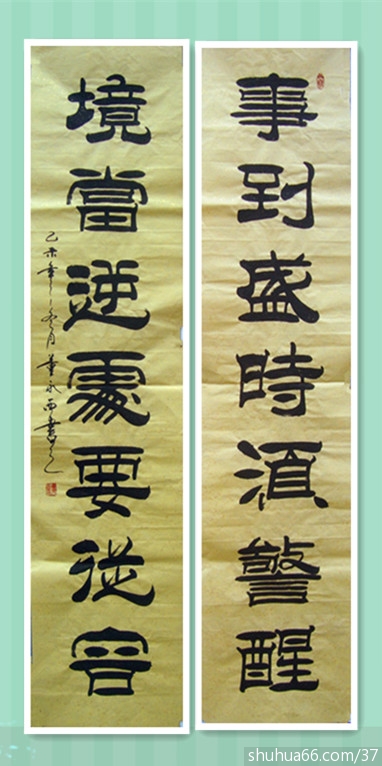 事到盛時須警醒
境當逆處要從容
乙未年冬月董永西書
shuhua66.com/37